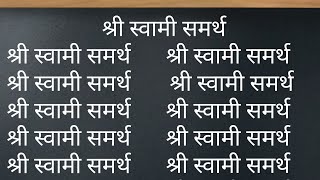 श्री स्वामी समर्थ
श्री स्वामी समर्थ श्री स्वामी समर्थ
श्री स्वामी समर्थ श्री स्वामी समर्थ
श्री स्वामी समर्थ श्री स्वामी समर्थ
श्री स्वामी समर्थ श्री स्वामी समर्थ
श्री स्वामी समर्थ श्री स्वामी समर्थ